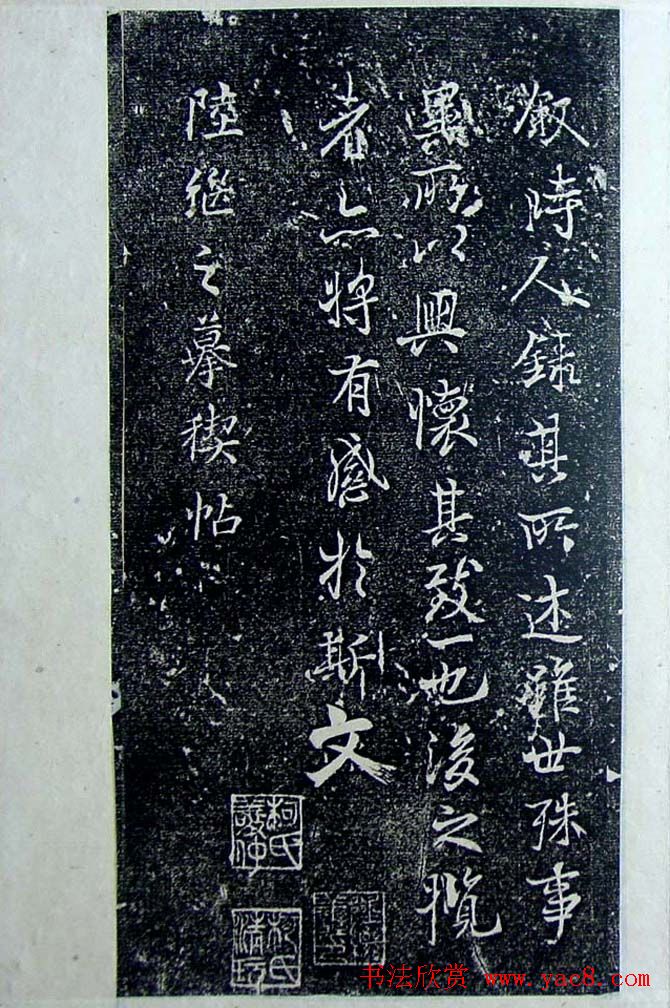 叙時人録其所述雖世殊事
異所以興懷其致一也後之攬
者亦將有感於斯文
陸繼之摹稧帖
柯氏敬仲
柯氏清玩
书法欣赏 www.yac8.com